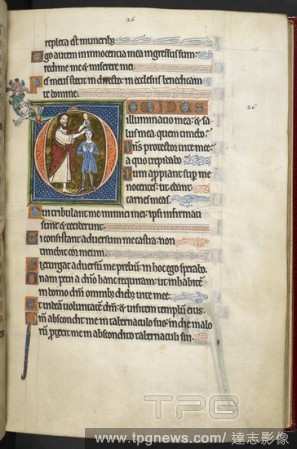 26
repleta est muneribz.
Ego autem in innocencia mea ingressus sum:
redime me & miserere mei.
Pes meus stetit in directo: in ecclesiis benedicam
te domine.
illuminatio mea: & sa
lus mea quem timebo.
26
Dns protector uite mee:
a quo trepidabo.
Dum appropiant sup me
nocentes: ut edant
carnes meas.
Qui tribulant me inimici mei: ipsi infirmati
sunt & ceciderunt.
Si consistant aduersum me castra: non
timebit cor meum.
Si exurgat aduersum me prelium: in hoc ego sperabo.
Unam petii a dno hanc requiram: ut inhabitem
in domo dni omnibz diebz uite mee.
Ut uideam uoluntatem dni: & uisitem templum eius.
abscondit me in tabernaculo suo: in die malo
rum protexit me in abscondito tabernaculi sui.
TPG
www.tpgnews.com / 達志影像